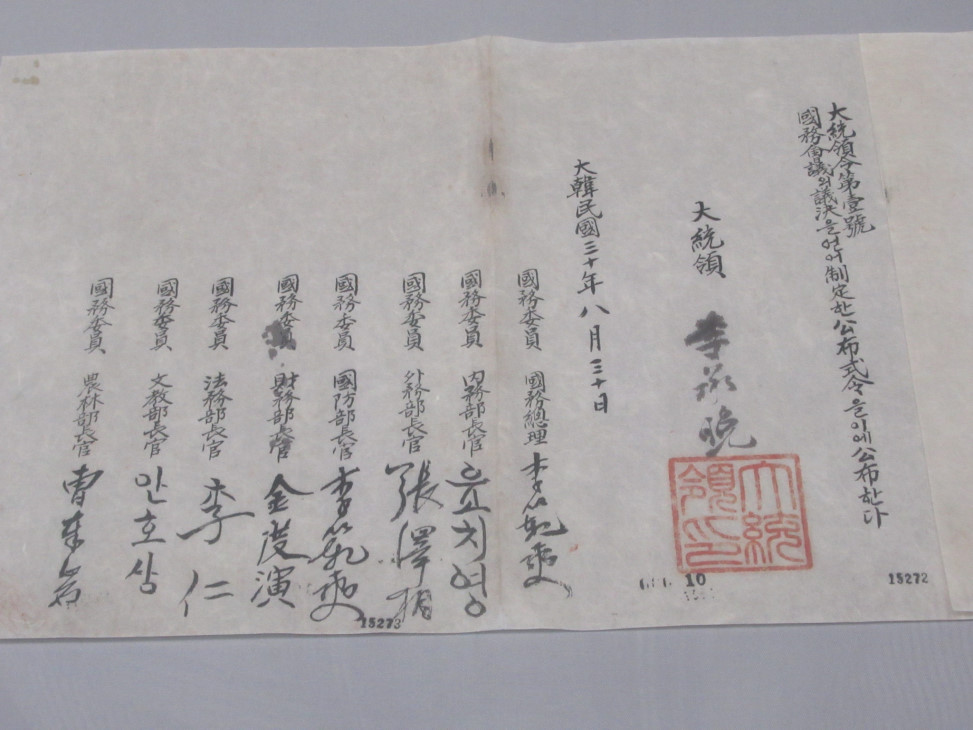 大統領令第壹號
國務會議의議決을얻어制定한公布式令을이에公布한다
大統領 李承晩
大統領印
大韓民國三十年八月三十日
國務委員 國務總理 李範奭
國務委員 內務部長官 윤치영
國務委員 外務部長官 張澤相
國務委員 國防部長官 李範奭
國務委員 財務部長官 金度演
國務委員 法務部長官 李仁
國務委員 文敎部長官 안호상
國務委員 農林部長官 曺奉岩
10
15272
15273